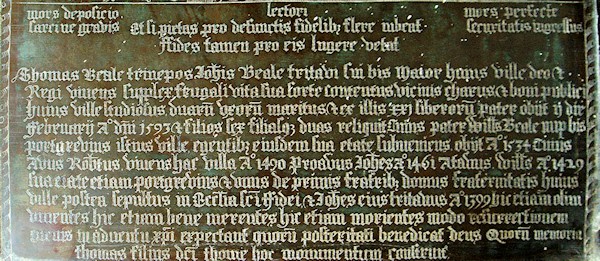 mors deposicio lectori mors perfecte
sarcine gravis Et si pietas pro defunctis fidelib; flere iubeat securitatis ingressus
ffides tamen pro eis lugere vetat
Thomas Beale trinepos Johis Beale tritavi sui bis Maior huius ville deo &
Regi vivens suplex frugali vita sua sorte contentus vicinis charus & boni publici
huius ville studiosus duarū vxorū maritus & ex illis xxj liberorū pater obijt ij die
februarij A° dni 1593 & filios sex filiasq; duas reliquit Cuius pater Wills Beale nup bis
portgrevius istius ville egentib; eiusdem sua etate subveniens obijt A° 1534 Cuius
Avus Robtus vivens hac villa A° 1490 Proavus Johes A° 1461 Atavus Wills A° 1429
sua etate etiam portgrevius & vnus de primis fratrib; domus fraternitatis huius
ville postea sepultus in Ecclia sci Fidei & Johes eius tritavus A° 1399 hic etiam olim
viventes hic etiam bene merentes hic etiam morientes modo resurrectionem
in adventu xpi expectant quorū posteritati benedicat deus Quorū memoria
thomas filius dci thome hoc monumentum construxit